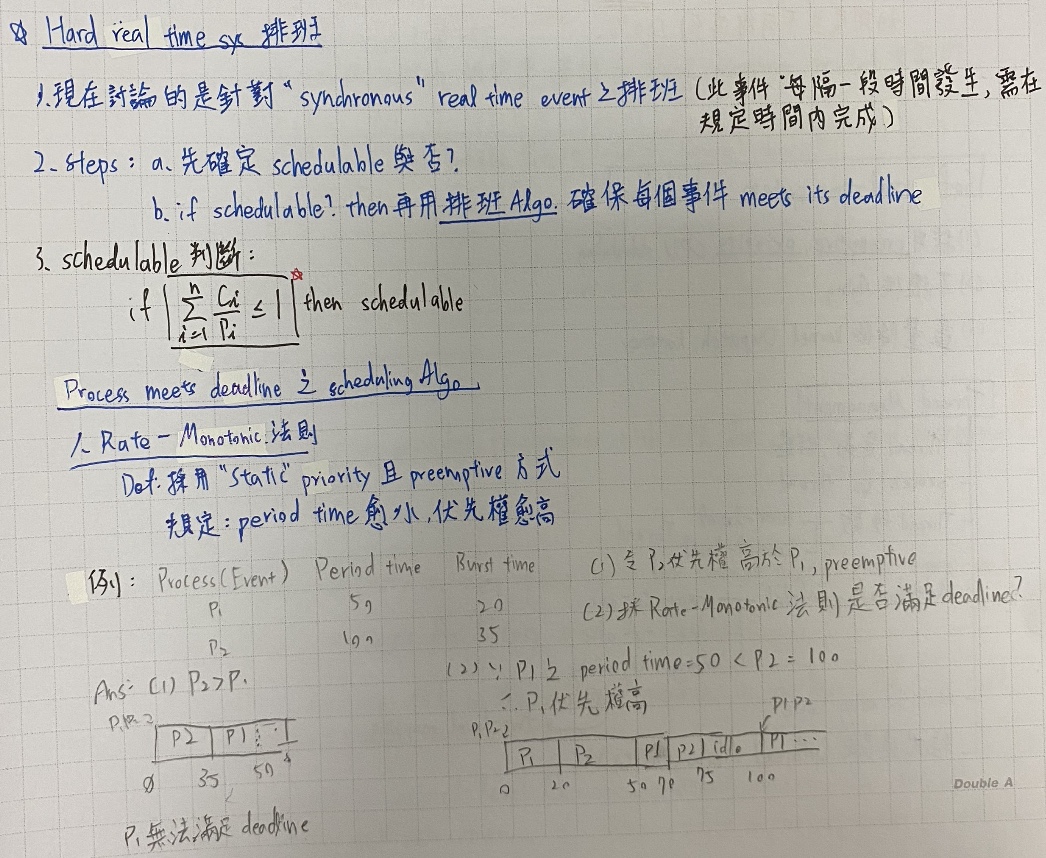 ☆ Hard real time sys 排班
1. 現在討論的是針對 "synchronous" real time event 之排班 (此事件 每隔一段時間發生, 需在
規定時間內完成)
2. steps: a. 先確定 schedulable 與否?
b. if schedulable? then 再用排班 Algo. 確保每個事件 meets its deadline
3. schedulable 判斷:
if ∑_{i=1}^{n} Ci/Pi ≤ 1 ☆ then schedulable
Process meets deadline 之 scheduling Algo
1. Rate-Monotonic 法則
Def: 採用 "Static" priority 且 preemptive 方式
規定: period time 愈小, 优先權愈高
例: Process(Event) Period time Burst time
P1 50 20
P2 100 35
(1) 令 P2 优先權高於 P1, preemptive
(2) 採 Rate-Monotonic 法則是否滿足 deadline?
Ans: (1) P2>P1
P1,P2
P2 P1 ...
0 35 50
P1 無法滿足 deadline
(2) ∵ P1 之 period time=50 < P2 = 100
∴ P1 优先權高
P1,P2 P1P2
P1 P2 P1 P2 idle P1 ...
0 20 50 70 75 100
Double A